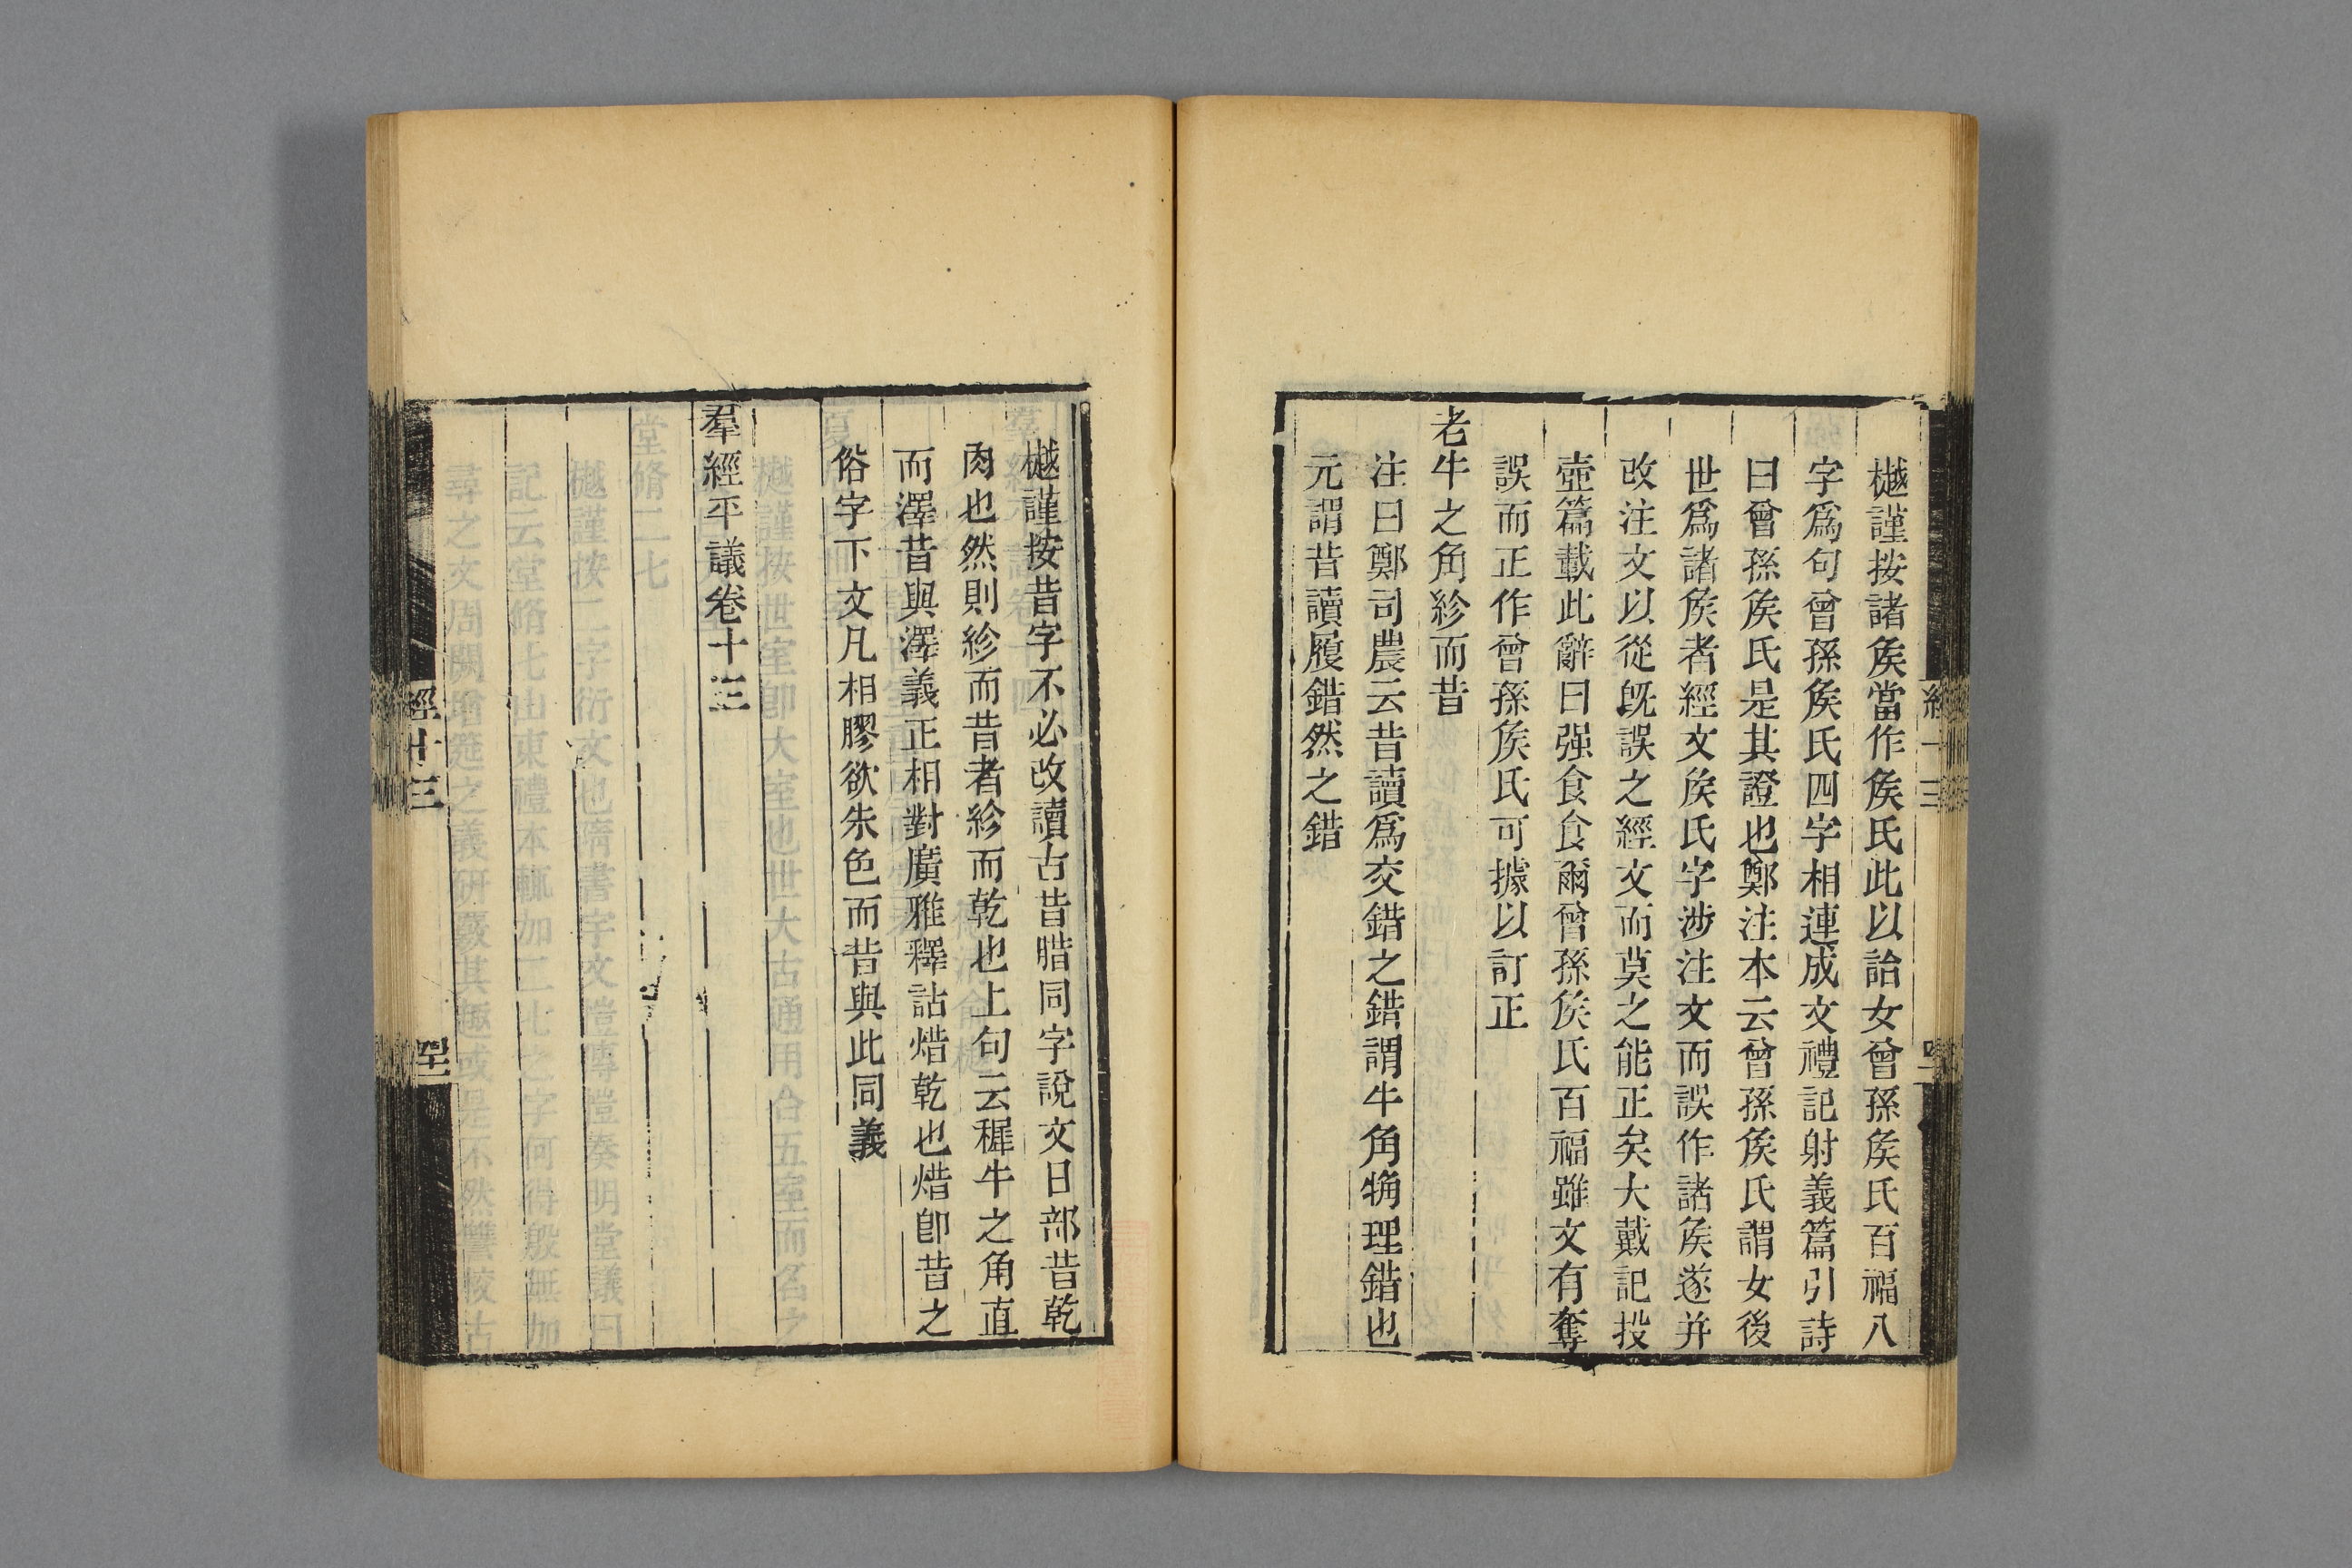 樾謹按諸矦當作矦氏此以詒女曾孫矦氏百福八
字爲句曾孫矦氏四字相連成文禮記射義篇引詩
曰曾孫矦氏是其證也鄭注本云曾孫矦氏謂女後
世爲諸矦者經文矦氏字涉注文而誤作諸矦遂并
改注文以從旣誤之經文而莫之能正矣大戴記投
壺篇載此辭曰强食食爾曾孫矦氏百福雖文有奪
誤而正作曾孫矦氏可據以訂正
老牛之角紾而昔
注曰鄭司農云昔讀爲交錯之錯謂牛角觕理錯也
元謂昔讀履錯然之錯
樾謹按昔字不必改讀古昔腊同字說文日部昔乾
肉也然則紾而昔者紾而乾也上句云穉牛之角直
而澤昔與澤義正相對廣雅釋詁焟乾也焟卽昔之
俗字下文凡相膠欲朱色而昔與此同義
羣經平議卷十三
經十三